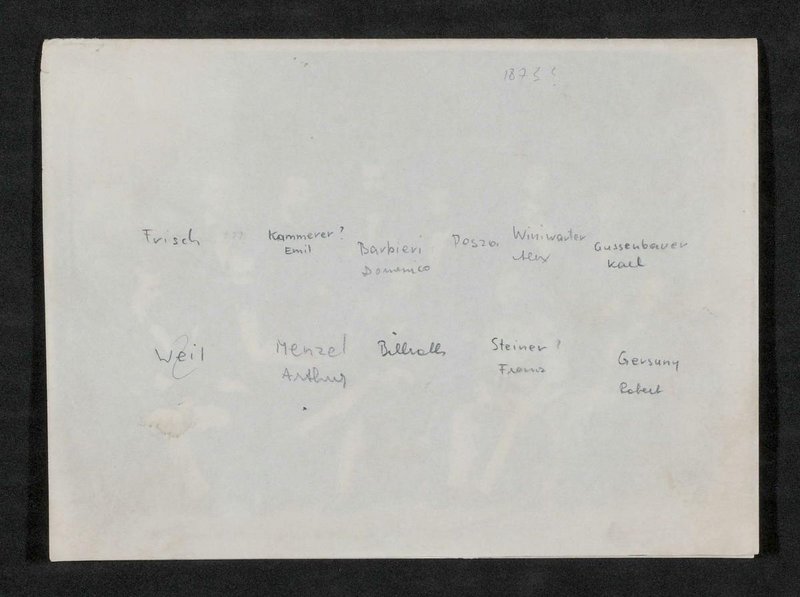 187
Frisch ??? Kammerer? Barbieri Dosza Winiwarter Gussenbauer
Emil Domenico Alex Karl
Weil Menzel Billroth Steiner? Gersuny
Arthur Franz Robert